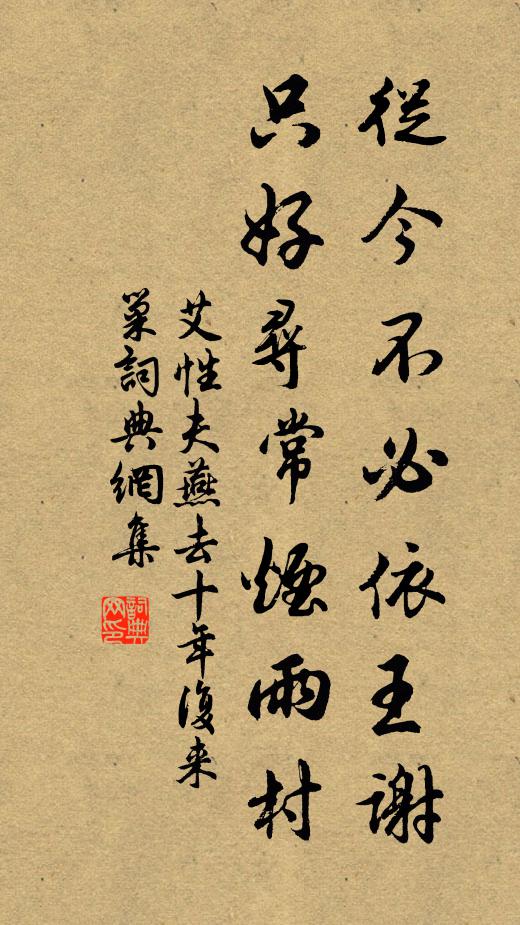 從今不必依王謝
只好尋常煙雨村
艾性夫燕去十年復来
巢詞典網集
詞典
网印